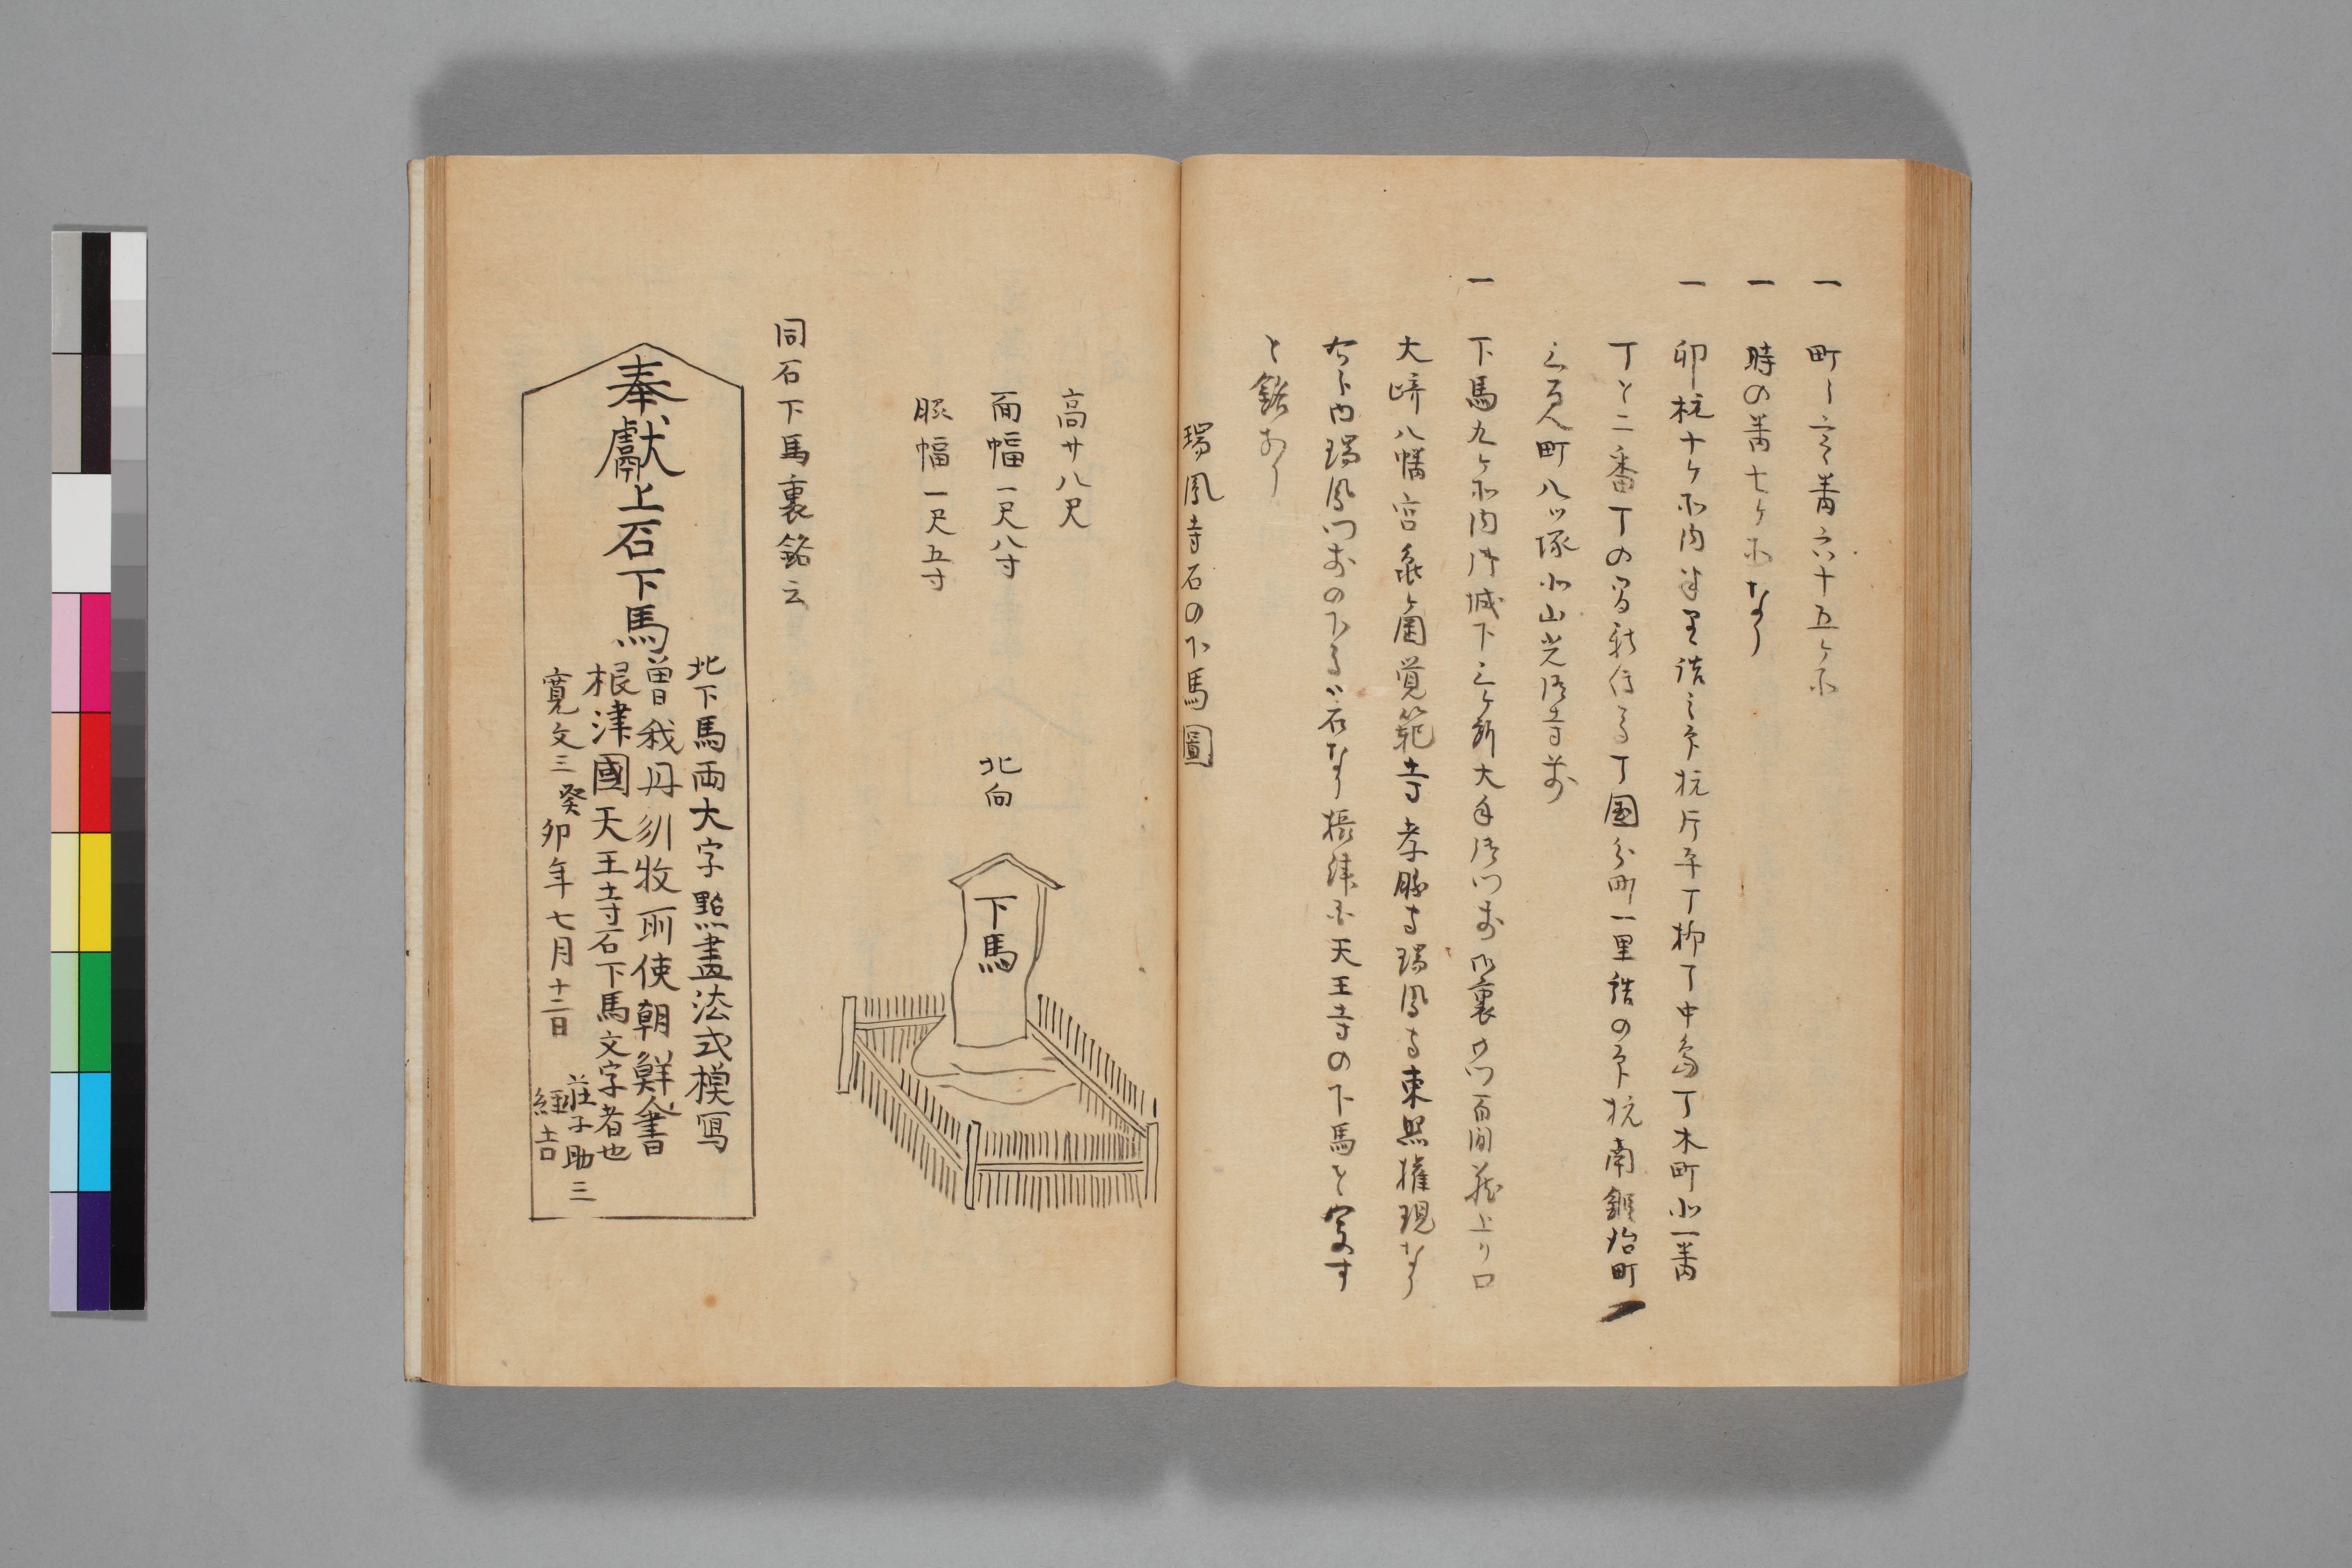 一 町々之箒六十五ヶ所
一 時の箒七ヶ所なり
一 印杭十ヶ所内半里詰之印杭片平丁柳丁中島丁木町北一番
丁と二番丁の間新伝馬丁国分町一里詰の印杭南鍛冶町
三百人町八ツ塚北山光明寺前
一 下馬九ヶ所内御城下三ヶ所大手御門前御裏御門百間蔵上り口
大崎八幡宮亀ヶ岡覚範寺孝勝寺瑞鳳寺東照権現なり
右之内瑞鳳門前の下馬ハ石なり摂津国天王寺の下馬を写す
と銘あり
瑞鳳寺石の下馬圖
高サ八尺
面幅一尺八寸
脇幅一尺五寸
北向
下馬
同石下馬裏銘云
奉獻上石下馬
此下馬両大字點畫法式模冩
曽我丹州牧所使朝鮮人書
根津國天王寺石下馬文字者也
寛文三癸卯年七月十二日
莊子助三
經吉